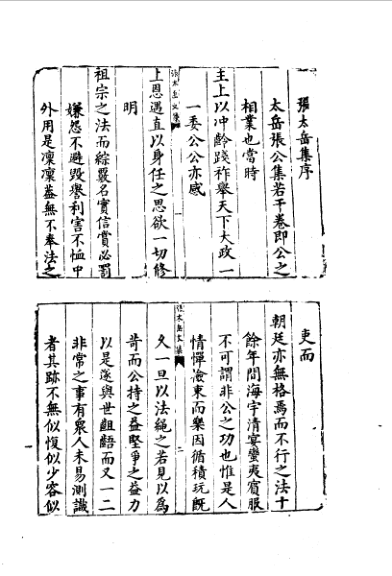 張太岳集序
太岳張公集若干卷即公之
相業也當時
主上以冲齡踐祚舉天下大政一
一委公公亦感
張太岳文集
上恩遇直以身任之思欲一切修
明
祖宗之法而綜覈名實信賞必罰
嫌怨不避毀譽利害不恤中
外用是凜凜蓋無不奉法之
吏而
朝廷亦無格焉而不行之法十
餘年間海宇清宴蠻夷賓服
不可謂非公之功也惟是人
情憚檢束而樂因循積玩既
張太岳文集
二
久一旦以法繩之若見以為
苛而公持之益堅爭之益力
以是遂與世齟齬而又一二
非常之事有衆人未易測識
者其跡不無似愎似少容似